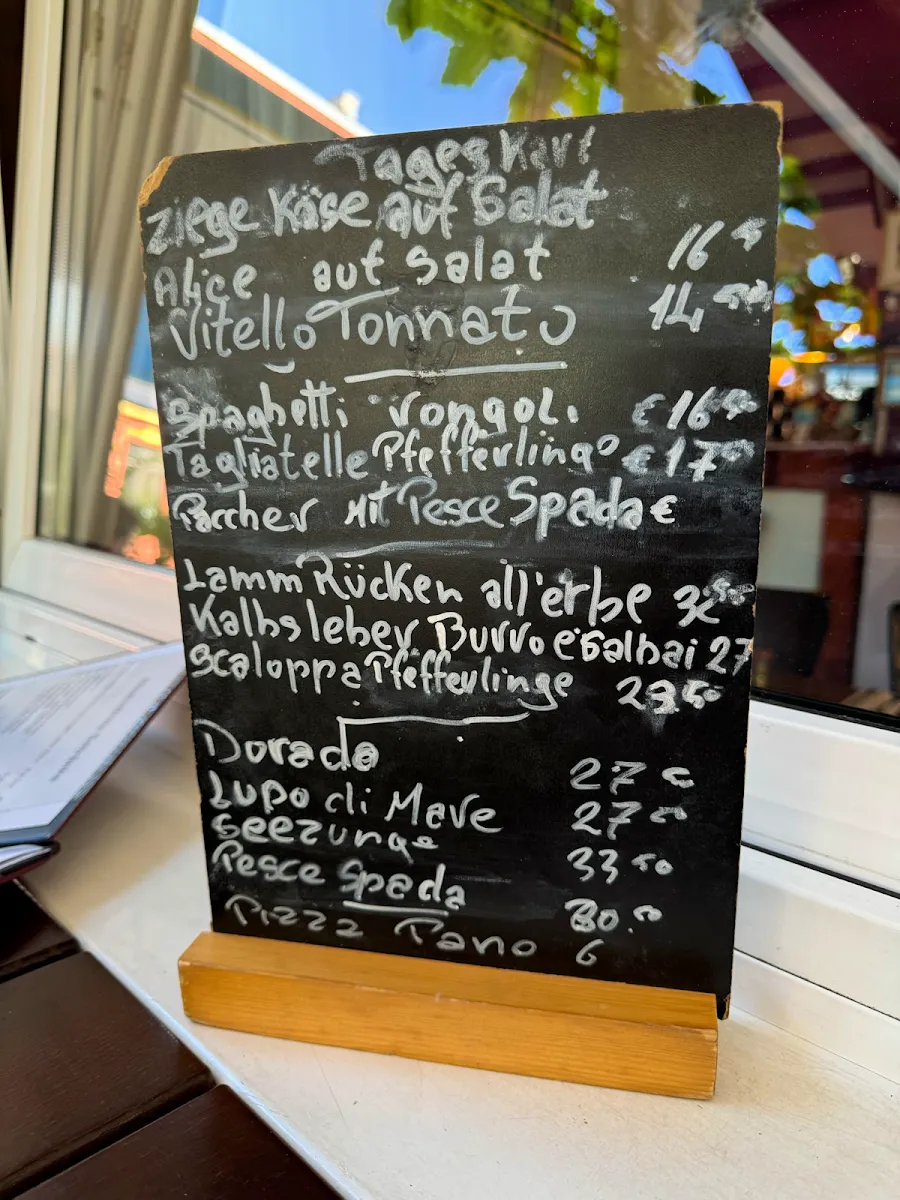 Tages Kart
Ziege Käse auf Salat
Alice auf Salat 16
Vitello Tonnato 14
Spaghetti Vongoli €16
Tagliatelle Pfefferlinge €17
Paccher Mit Pesce Spada €
Lamm Rücken all'erbe
Kalbsleber Burro e Salbai 27
Scaloppa Pfefferlinge
Dorade 27
Lupo di Mare 27
Seezunge 33
Pesce Spada 30
Pizza Pane 6